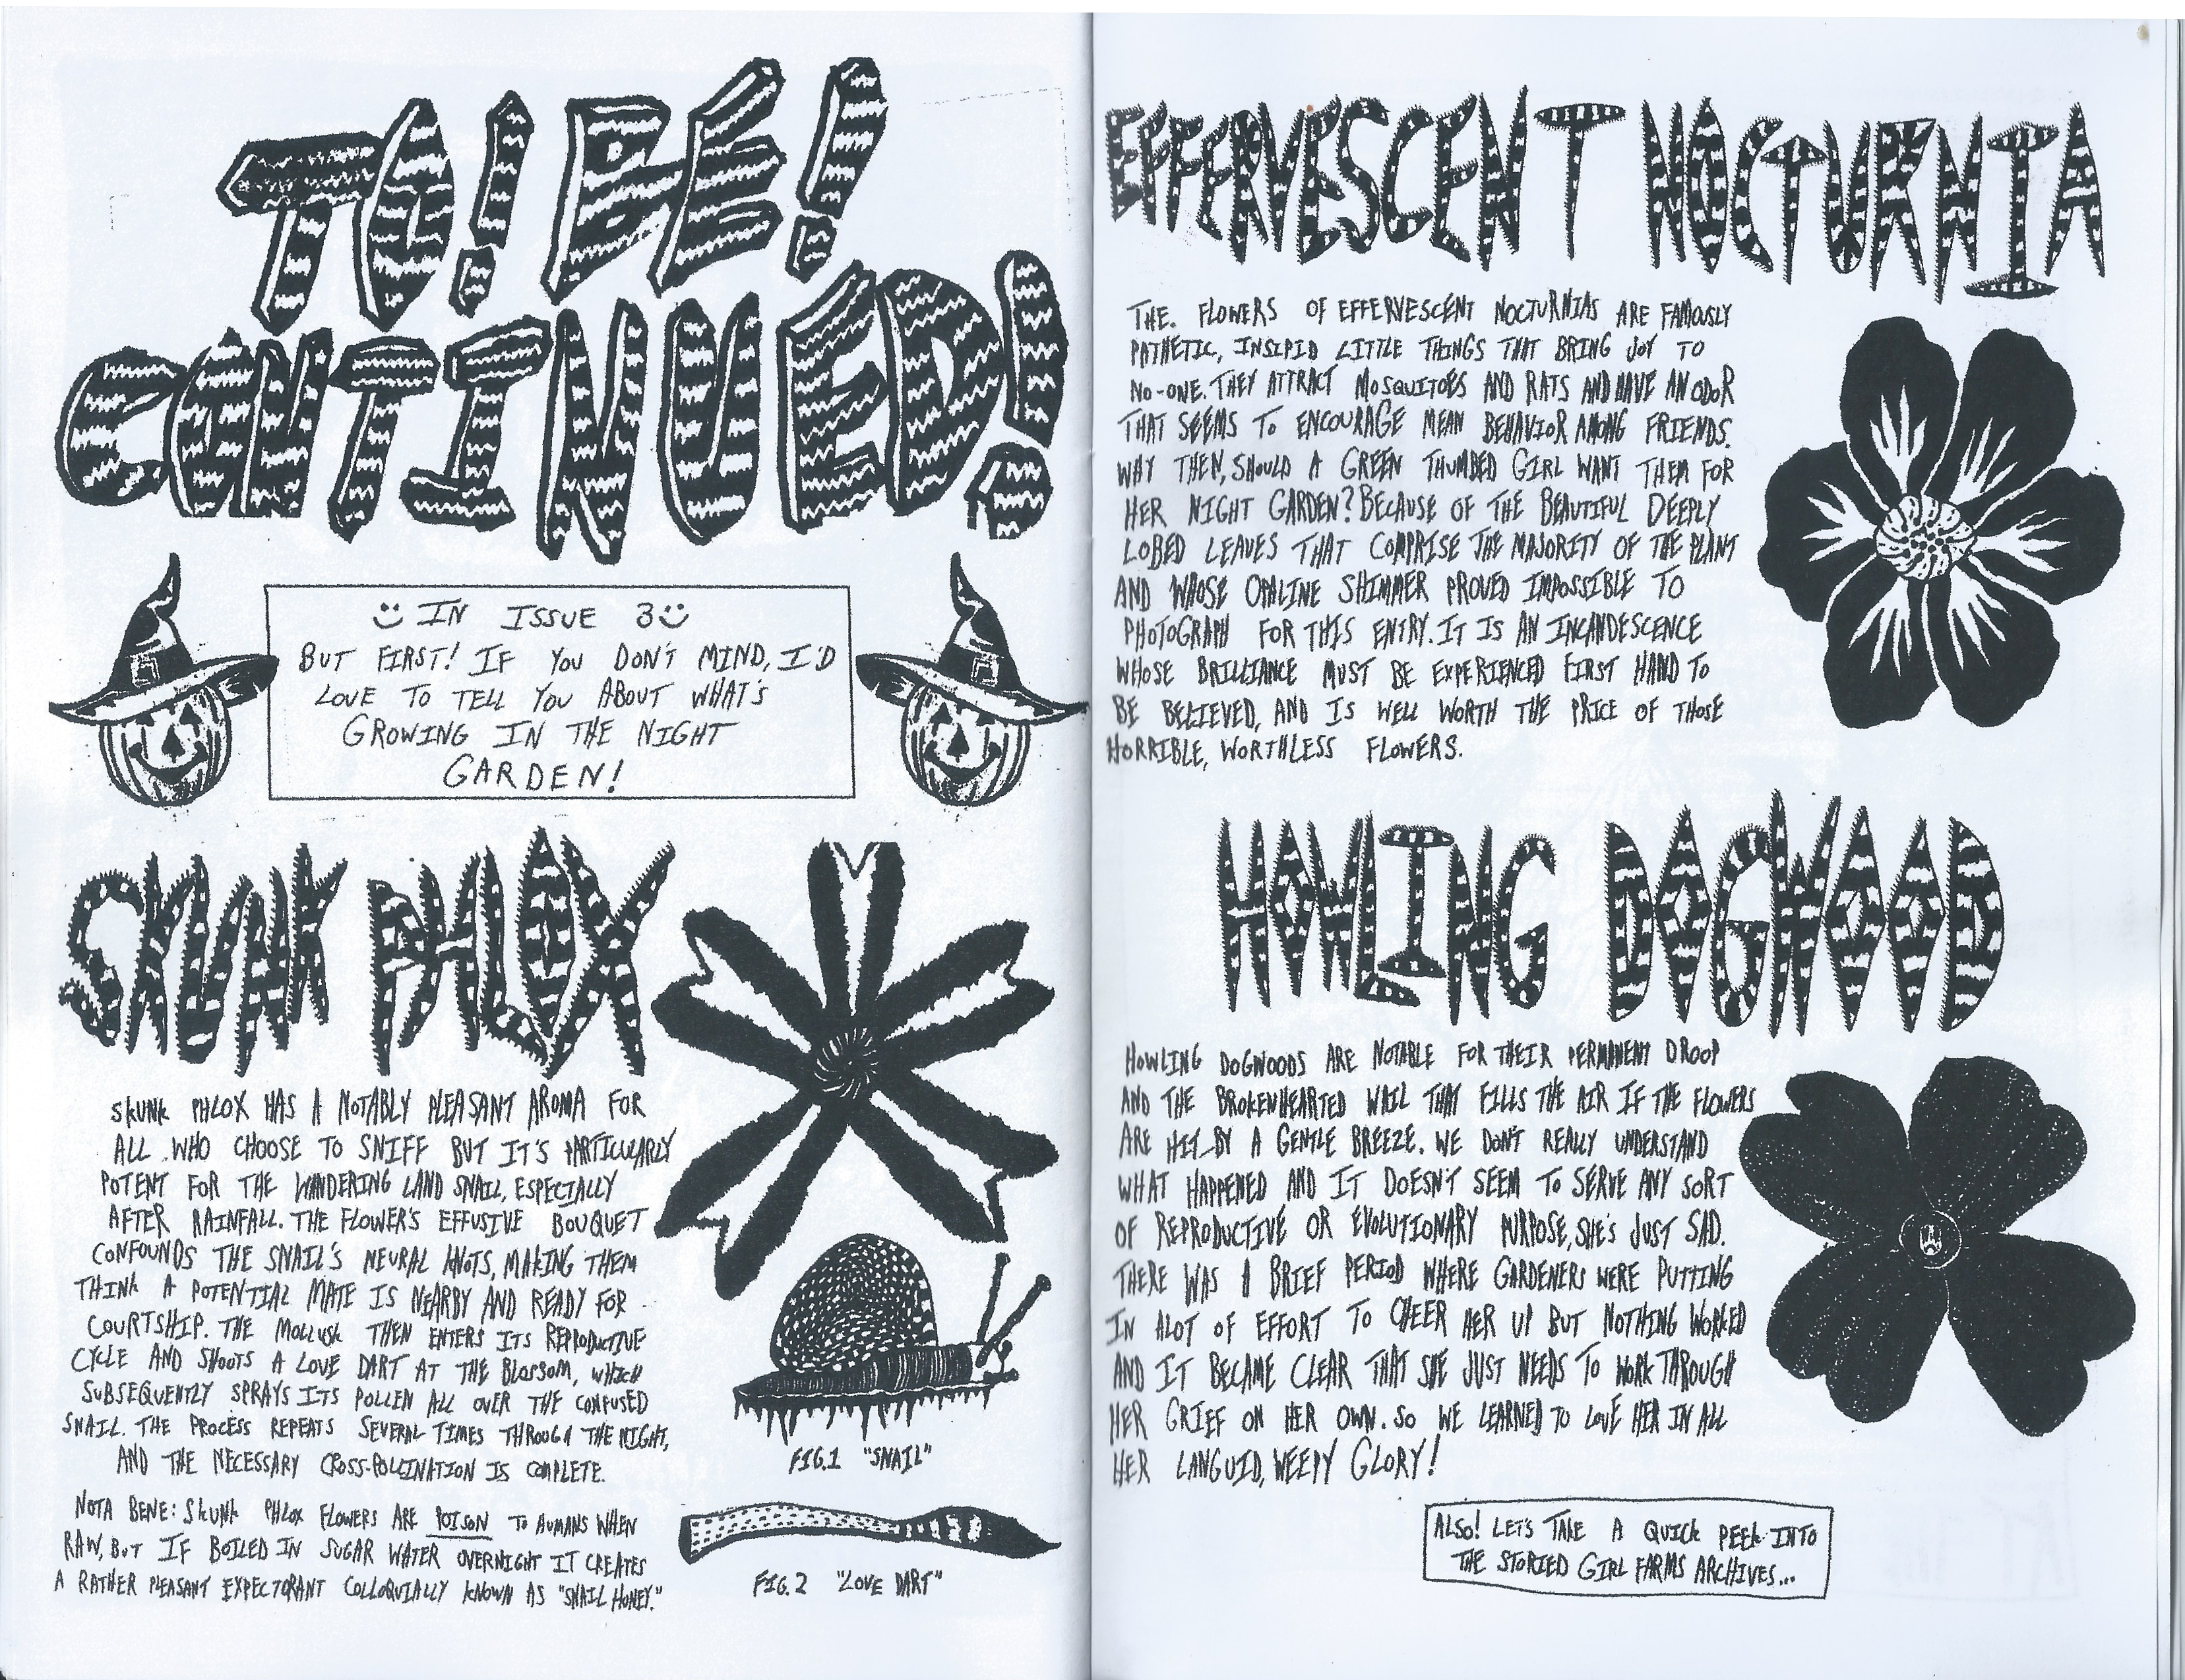 TO! BE!
CONTINUED!
IN ISSUE 3
BUT FIRST! IF YOU DON'T MIND, I'D
LOVE TO TELL YOU ABOUT WHAT'S
GROWING IN THE NIGHT
GARDEN!
SKUNK PHLOX
SKUNK PHLOX HAS A NOTABLY PLEASANT AROMA FOR
ALL WHO CHOOSE TO SNIFF BUT IT'S PARTICULARLY
POTENT FOR THE WANDERING LAND SNAIL, ESPECIALLY
AFTER RAINFALL. THE FLOWER'S EFFUSIVE BOUQUET
CONFOUNDS THE SNAIL'S NEURAL KNOTS, MAKING THEM
THINK A POTENTIAL MATE IS NEARBY AND READY FOR
COURTSHIP. THE MOLLUSK THEN ENTERS ITS REPRODUCTIVE
CYCLE AND SHOOTS A LOVE DART AT THE BLOSSOM, WHICH
SUBSEQUENTLY SPRAYS ITS POLLEN ALL OVER THE CONFUSED
SNAIL. THE PROCESS REPEATS SEVERAL TIMES THROUGH THE NIGHT,
AND THE NECESSARY CROSS-POLLINATION IS COMPLETE.
NOTA BENE: SKUNK PHLOX FLOWERS ARE POISON TO HUMANS WHEN
RAW, BUT IF BOILED IN SUGAR WATER OVERNIGHT IT CREATES
A RATHER PLEASANT EXPECTORANT COLLOQUIALLY KNOWN AS "SNAIL HONEY."
FIG.1 "SNAIL"
FIG.2 "LOVE DART"
EFFERVESCENT NOCTURNIA
THE. FLOWERS OF EFFERVESCENT NOCTURNIAS ARE FAMOUSLY
PATHETIC, INSIPID LITTLE THINGS THAT BRING JOY TO
NO-ONE. THEY ATTRACT MOSQUITOES AND RATS AND HAVE AN ODOR
THAT SEEMS TO ENCOURAGE MEAN BEHAVIOR AMONG FRIENDS.
WHY THEN, SHOULD A GREEN THUMBED GIRL WANT THEM FOR
HER NIGHT GARDEN? BECAUSE OF THE BEAUTIFUL DEEPLY
LOBED LEAVES THAT COMPRISE THE MAJORITY OF THE PLANT
AND WHOSE OPALINE SHIMMER PROVED IMPOSSIBLE TO
PHOTOGRAPH FOR THIS ENTRY. IT IS AN INCANDESCENCE
WHOSE BRILLIANCE MUST BE EXPERIENCED FIRST HAND TO
BE BELIEVED, AND IS WELL WORTH THE PRICE OF THOSE
HORRIBLE, WORTHLESS FLOWERS.
HOWLING DOGWOOD
HOWLING DOGWOODS ARE NOTABLE FOR THEIR PERMANENT DROOP
AND THE BROKENHEARTED WAIL THAT FILLS THE AIR IF THE FLOWERS
ARE HIT BY A GENTLE BREEZE. WE DON'T REALLY UNDERSTAND
WHAT HAPPENED AND IT DOESN'T SEEM TO SERVE ANY SORT
OF REPRODUCTIVE OR EVOLUTIONARY PURPOSE, SHE'S JUST SAD.
THERE WAS A BRIEF PERIOD WHERE GARDENERS WERE PUTTING
IN ALOT OF EFFORT TO CHEER HER UP BUT NOTHING WORKED
AND IT BECAME CLEAR THAT SHE JUST NEEDS TO WORK THROUGH
HER GRIEF ON HER OWN. SO WE LEARNED TO LOVE HER IN ALL
HER LANGUID, WEEPY GLORY!
ALSO! LET'S TAKE A QUICK PEEK INTO
THE STORIED GIRL FARMS ARCHIVES...